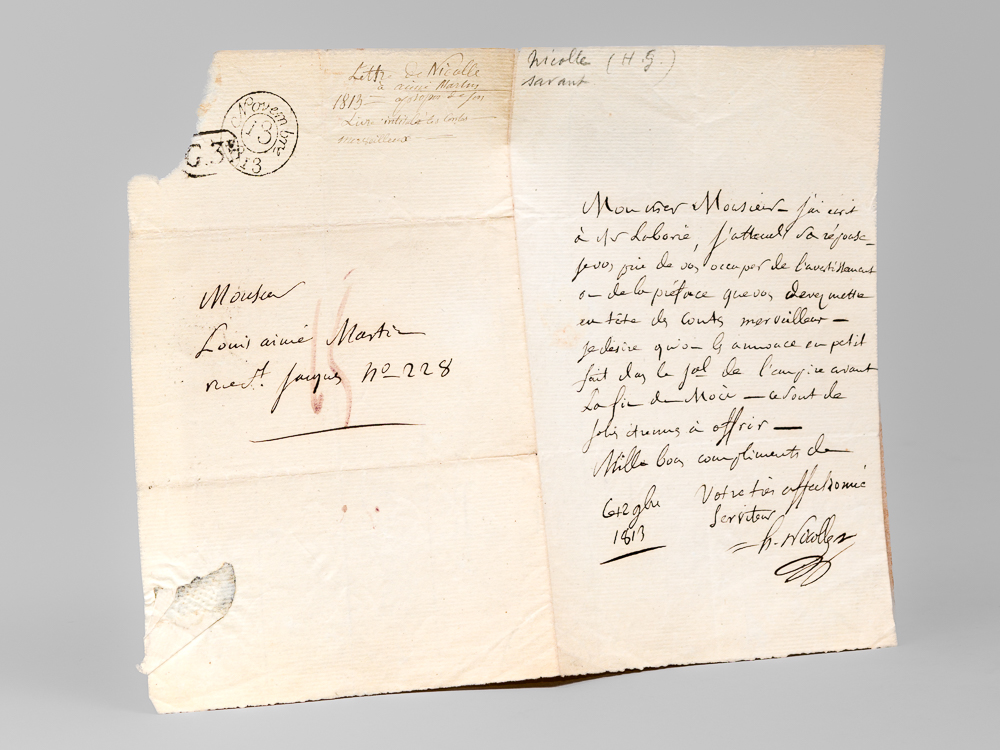 Novembre
13
1813
G.3
Lettre de Nicolle
à aimé Martin
1813 = apropos de son
Livre intitulé les contes
merveilleux —
Nicolle (H. G.)
savant
Monsieur
Louis aimé Martin
rue St. Jacques No 228
15
Mon cher Monsieur j'ai écrit
à Mr Laborie, j'attends sa réponse —
je vous prie de vous occuper de l'avertissement
ou de la préface que vous devez mettre
en tête des contes merveilleux —
je désire qu'on les annonce en petit
fait dans le jal de l'empire avant
la fin du Mois — ce sont de
jolis étrennes à offrir —
Mille bons compliments de
Votre très affectionné
Serviteur
h. Nicolle
Ce 12 9bre
1813